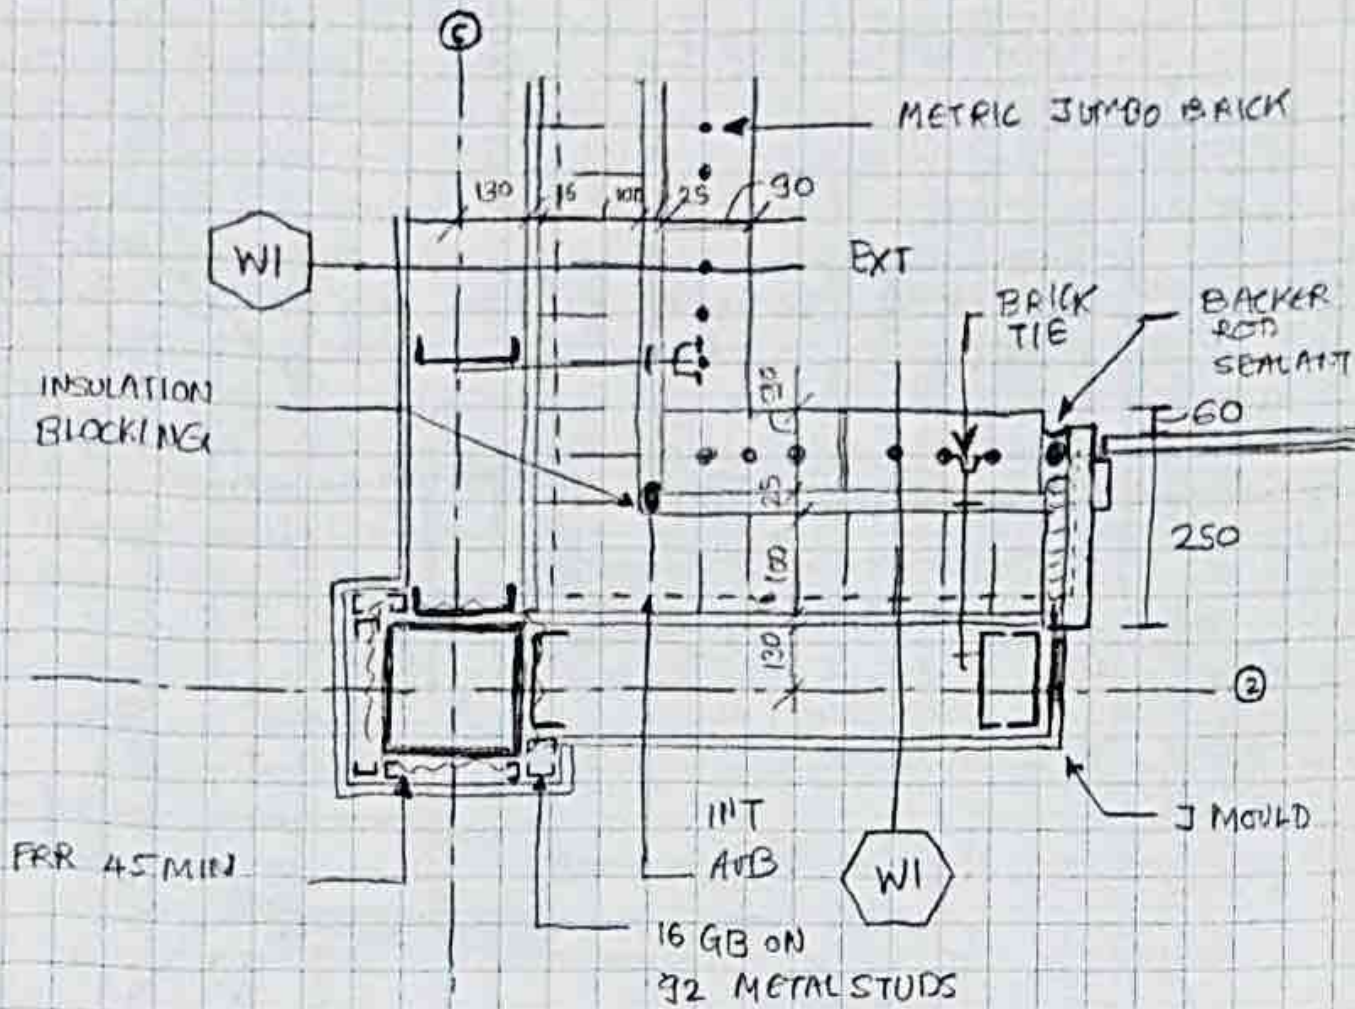 5
METRIC JUMBO BRICK
130 15 100 25 90
W1
EXT
BRICK
TIE
BACKER
ROD
SEALANT
INSULATION
BLOCKING
90
60
25
250
100
130
2
J MOULD
INT
AVB
W1
FRR 45 MIN
16 GB ON
92 METAL STUDS